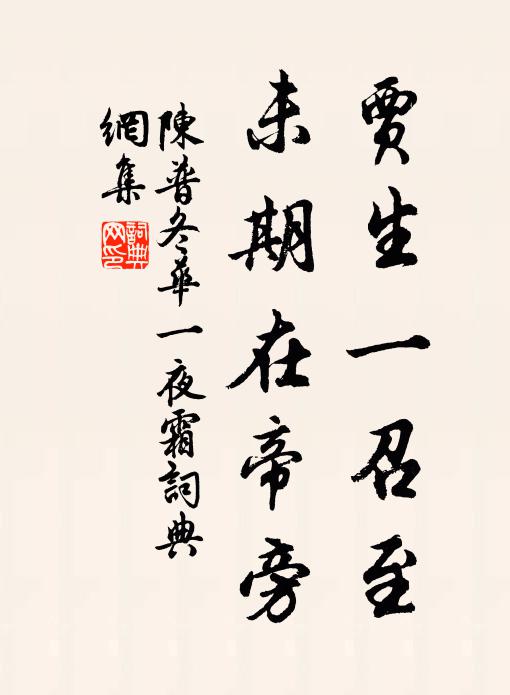 賈生一召至
未期在帝旁
陳普冬華一夜霜詞典
網集
詞典
网印